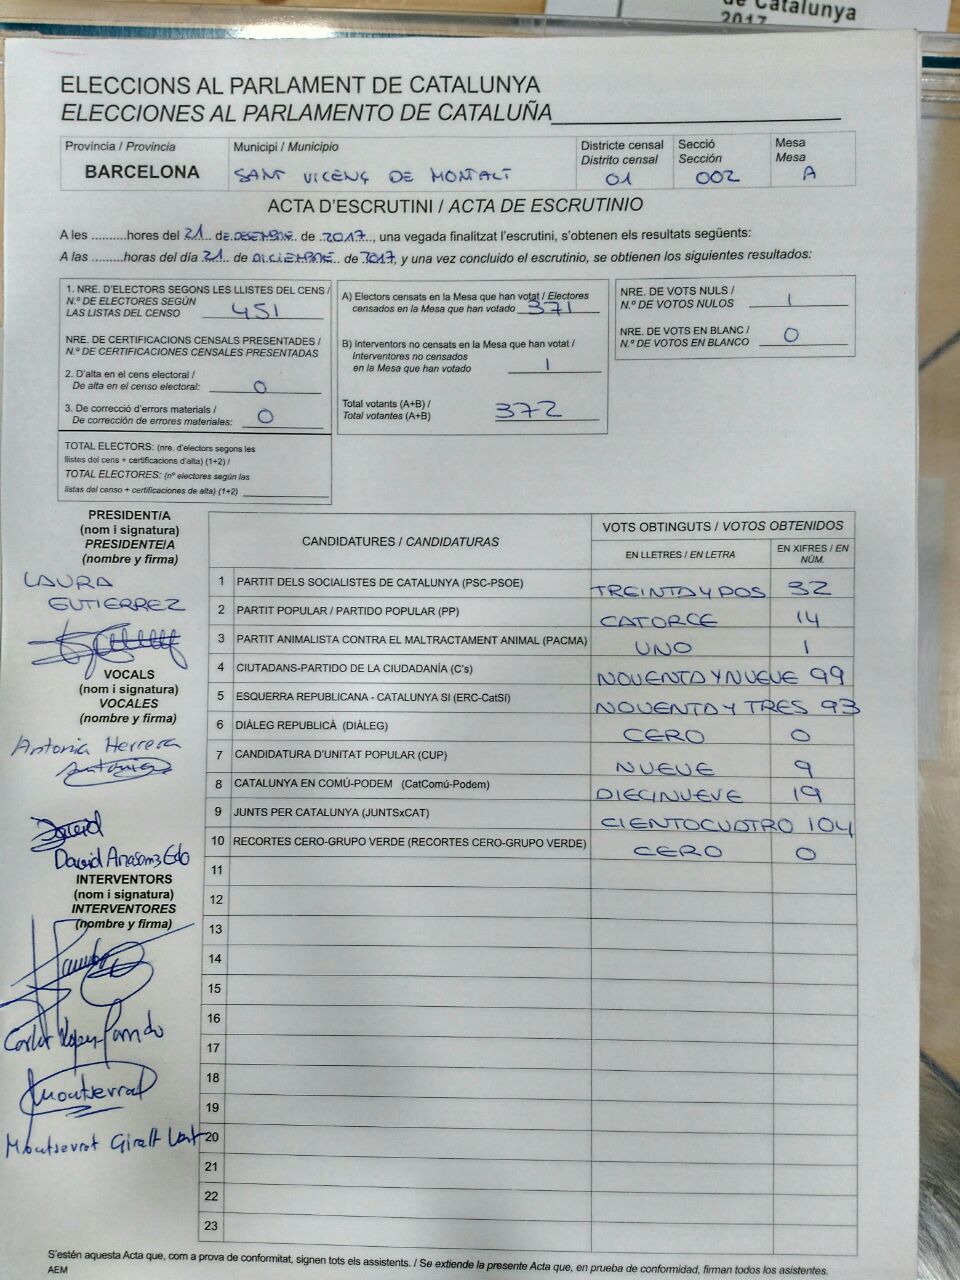 de Catalunya
2017
ELECCIONS AL PARLAMENT DE CATALUNYA
ELECCIONES AL PARLAMENTO DE CATALUÑA
Provincia / Provincia
BARCELONA
Municipi / Municipio
SANT VICENÇ DE MONTALT
Districte censal
Distrito censal
01
Secció
Sección
002
Mesa
Mesa
A
ACTA D'ESCRUTINI / ACTA DE ESCRUTINIO
A les ..........hores del 21 de DESEMBRE de 2017, una vegada finalitzat l'escrutini, s'obtenen els resultats següents:
A las ..........horas del día 21 de DICIEMBRE de 2017, y una vez concluido el escrutinio, se obtienen los siguientes resultados:
1. NRE. D'ELECTORS SEGONS LES LLISTES DEL CENS /
N.º DE ELECTORES SEGÚN
LAS LISTAS DEL CENSO 451
NRE. DE CERTIFICACIONS CENSALS PRESENTADES /
N.º DE CERTIFICACIONES CENSALES PRESENTADAS
2. D'alta en el cens electoral /
De alta en el censo electoral: 0
3. De correcció d'errors materials /
De corrección de errores materiales: 0
TOTAL ELECTORS: (nre. d'electors segons les
llistes del cens + certificacions d'alta) (1+2) /
TOTAL ELECTORES: (nº electores según las
listas del censo + certificaciones de alta) (1+2)
A) Electors censats en la Mesa que han votat / Electores
censados en la Mesa que han votado 371
B) Interventors no censats en la Mesa que han votat /
Interventores no censados
en la Mesa que han votado 1
Total votants (A+B) /
Total votantes (A+B) 372
NRE. DE VOTS NULS /
N.º DE VOTOS NULOS 1
NRE. DE VOTS EN BLANC /
N.º DE VOTOS EN BLANCO 0
PRESIDENT/A
(nom i signatura)
PRESIDENTE/A
(nombre y firma)
LAURA
GUTIERREZ
VOCALS
(nom i signatura)
VOCALES
(nombre y firma)
Antonia Herrera
Antonia
David
David
INTERVENTORS
(nom i signatura)
INTERVENTORES
(nombre y firma)
Montserrat
Montserrat Giralt
CANDIDATURES / CANDIDATURAS
VOTS OBTINGUTS / VOTOS OBTENIDOS
EN LLETRES / EN LETRA
EN XIFRES / EN
NÚM.
1 PARTIT DELS SOCIALISTES DE CATALUNYA (PSC-PSOE) TREINTA Y DOS 32
2 PARTIT POPULAR / PARTIDO POPULAR (PP) CATORCE 14
3 PARTIT ANIMALISTA CONTRA EL MALTRACTAMENT ANIMAL (PACMA) UNO 1
4 CIUTADANS-PARTIDO DE LA CIUDADANÍA (C's) NOVENTA Y NUEVE 99
5 ESQUERRA REPUBLICANA - CATALUNYA SI (ERC-CatSí) NOVENTA Y TRES 93
6 DIÀLEG REPUBLICÀ (DIÀLEG) CERO 0
7 CANDIDATURA D'UNITAT POPULAR (CUP) NUEVE 9
8 CATALUNYA EN COMÚ-PODEM (CatComú-Podem) DIECINUEVE 19
9 JUNTS PER CATALUNYA (JUNTSxCAT) CIENTOCUATRO 104
10 RECORTES CERO-GRUPO VERDE (RECORTES CERO-GRUPO VERDE) CERO 0
11
12
13
14
15
16
17
18
19
20
21
22
23
S'estén aquesta Acta que, com a prova de conformitat, signen tots els assistents. / Se extiende la presente Acta que, en prueba de conformidad, firman todos los asistentes.
AEM